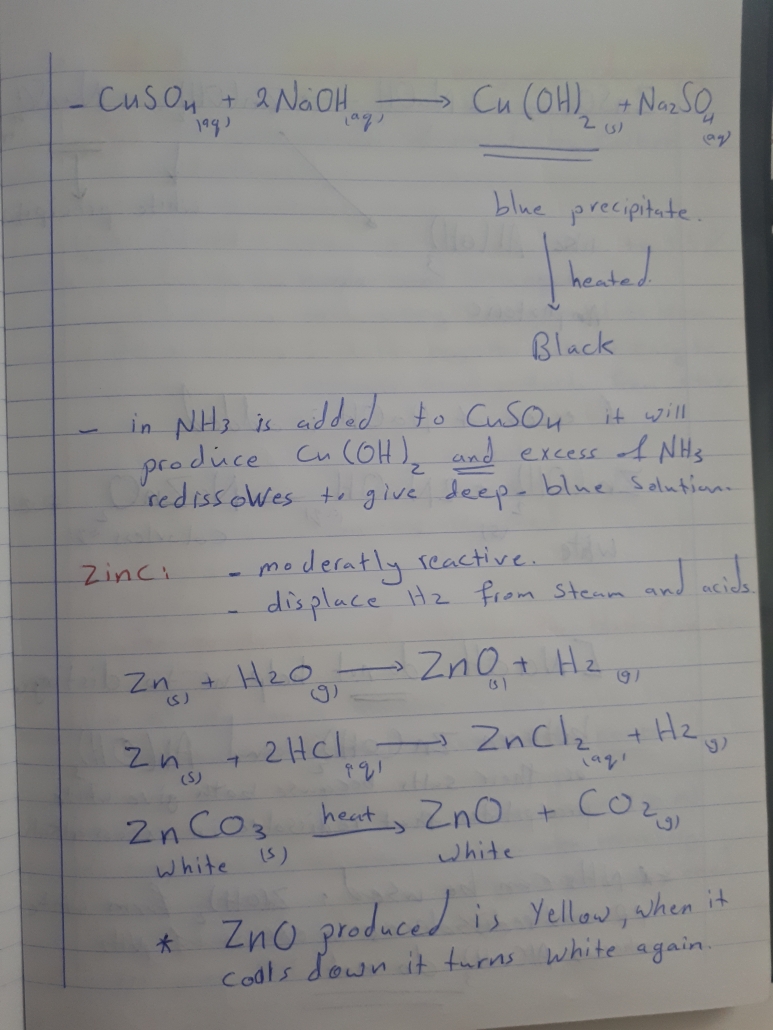 - CuSO4 (aq) + 2NaOH (aq) ⟶ Cu(OH)2 (s) + Na2SO4 (aq)
blue precipitate.
heated.
Black
- in NH3 is added to CuSO4 it will
produce Cu(OH)2 and excess of NH3
redissolves to give deep-blue solution.
Zinc: - moderatly reactive.
- displace H2 from steam and acids.
Zn(s) + H2O(g) ⟶ ZnO(s) + H2(g)
Zn(s) + 2HCl(aq) ⟶ ZnCl2(aq) + H2(g)
ZnCO3(s) heat ⟶ ZnO + CO2(g)
white white
* ZnO produced is Yellow, when it
cools down it turns white again.